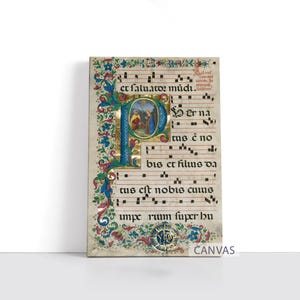 et saluator mūdi.
P Uer na
tus ē no
bis et filius da
tus est nobis cuius
impe rium super hu
CANVAS